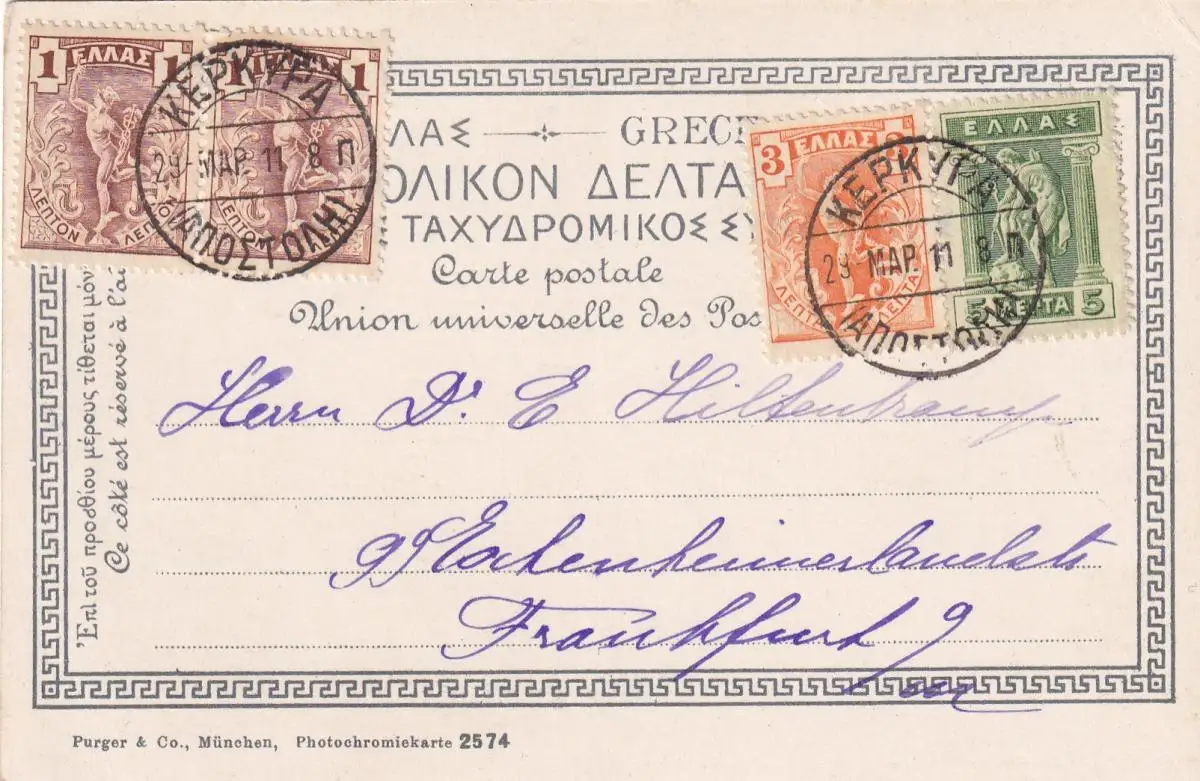 1 ΕΛΛΑΣ 1
ΛΕΠΤΟΝ ΛΕΠΤΟΝ
1 ΕΛΛΑΣ 1
ΛΕΠΤΟΝ
ΚΕΡΚΥΡΑ
29 ΜΑΡ. 11 8 Π
(ΑΠΟΣΤΟΛΗ)
3 ΕΛΛΑΣ 3
ΛΕΠΤΑ ΛΕΠΤΑ
ΕΛΛΑΣ
5 ΛΕΠΤΑ 5
ΚΕΡΚΥΡΑ
29 ΜΑΡ. 11 8 Π
(ΑΠΟΣΤΟΛΗ)
ΛΑΣ GRECE
ΟΛΙΚΟΝ ΔΕΛΤΑ
ΤΑΧΥΔΡΟΜΙΚΟΣ ΣΥ
Carte postale
Union universelle des Pos
Ἐπὶ τοῦ προσθίου μέρους τίθεται μόν
Ce côté est réservé à l'a
Herrn Dr. E Hiltenkamp
Frankfurt
Purger & Co., München, Photochromiekarte 2574